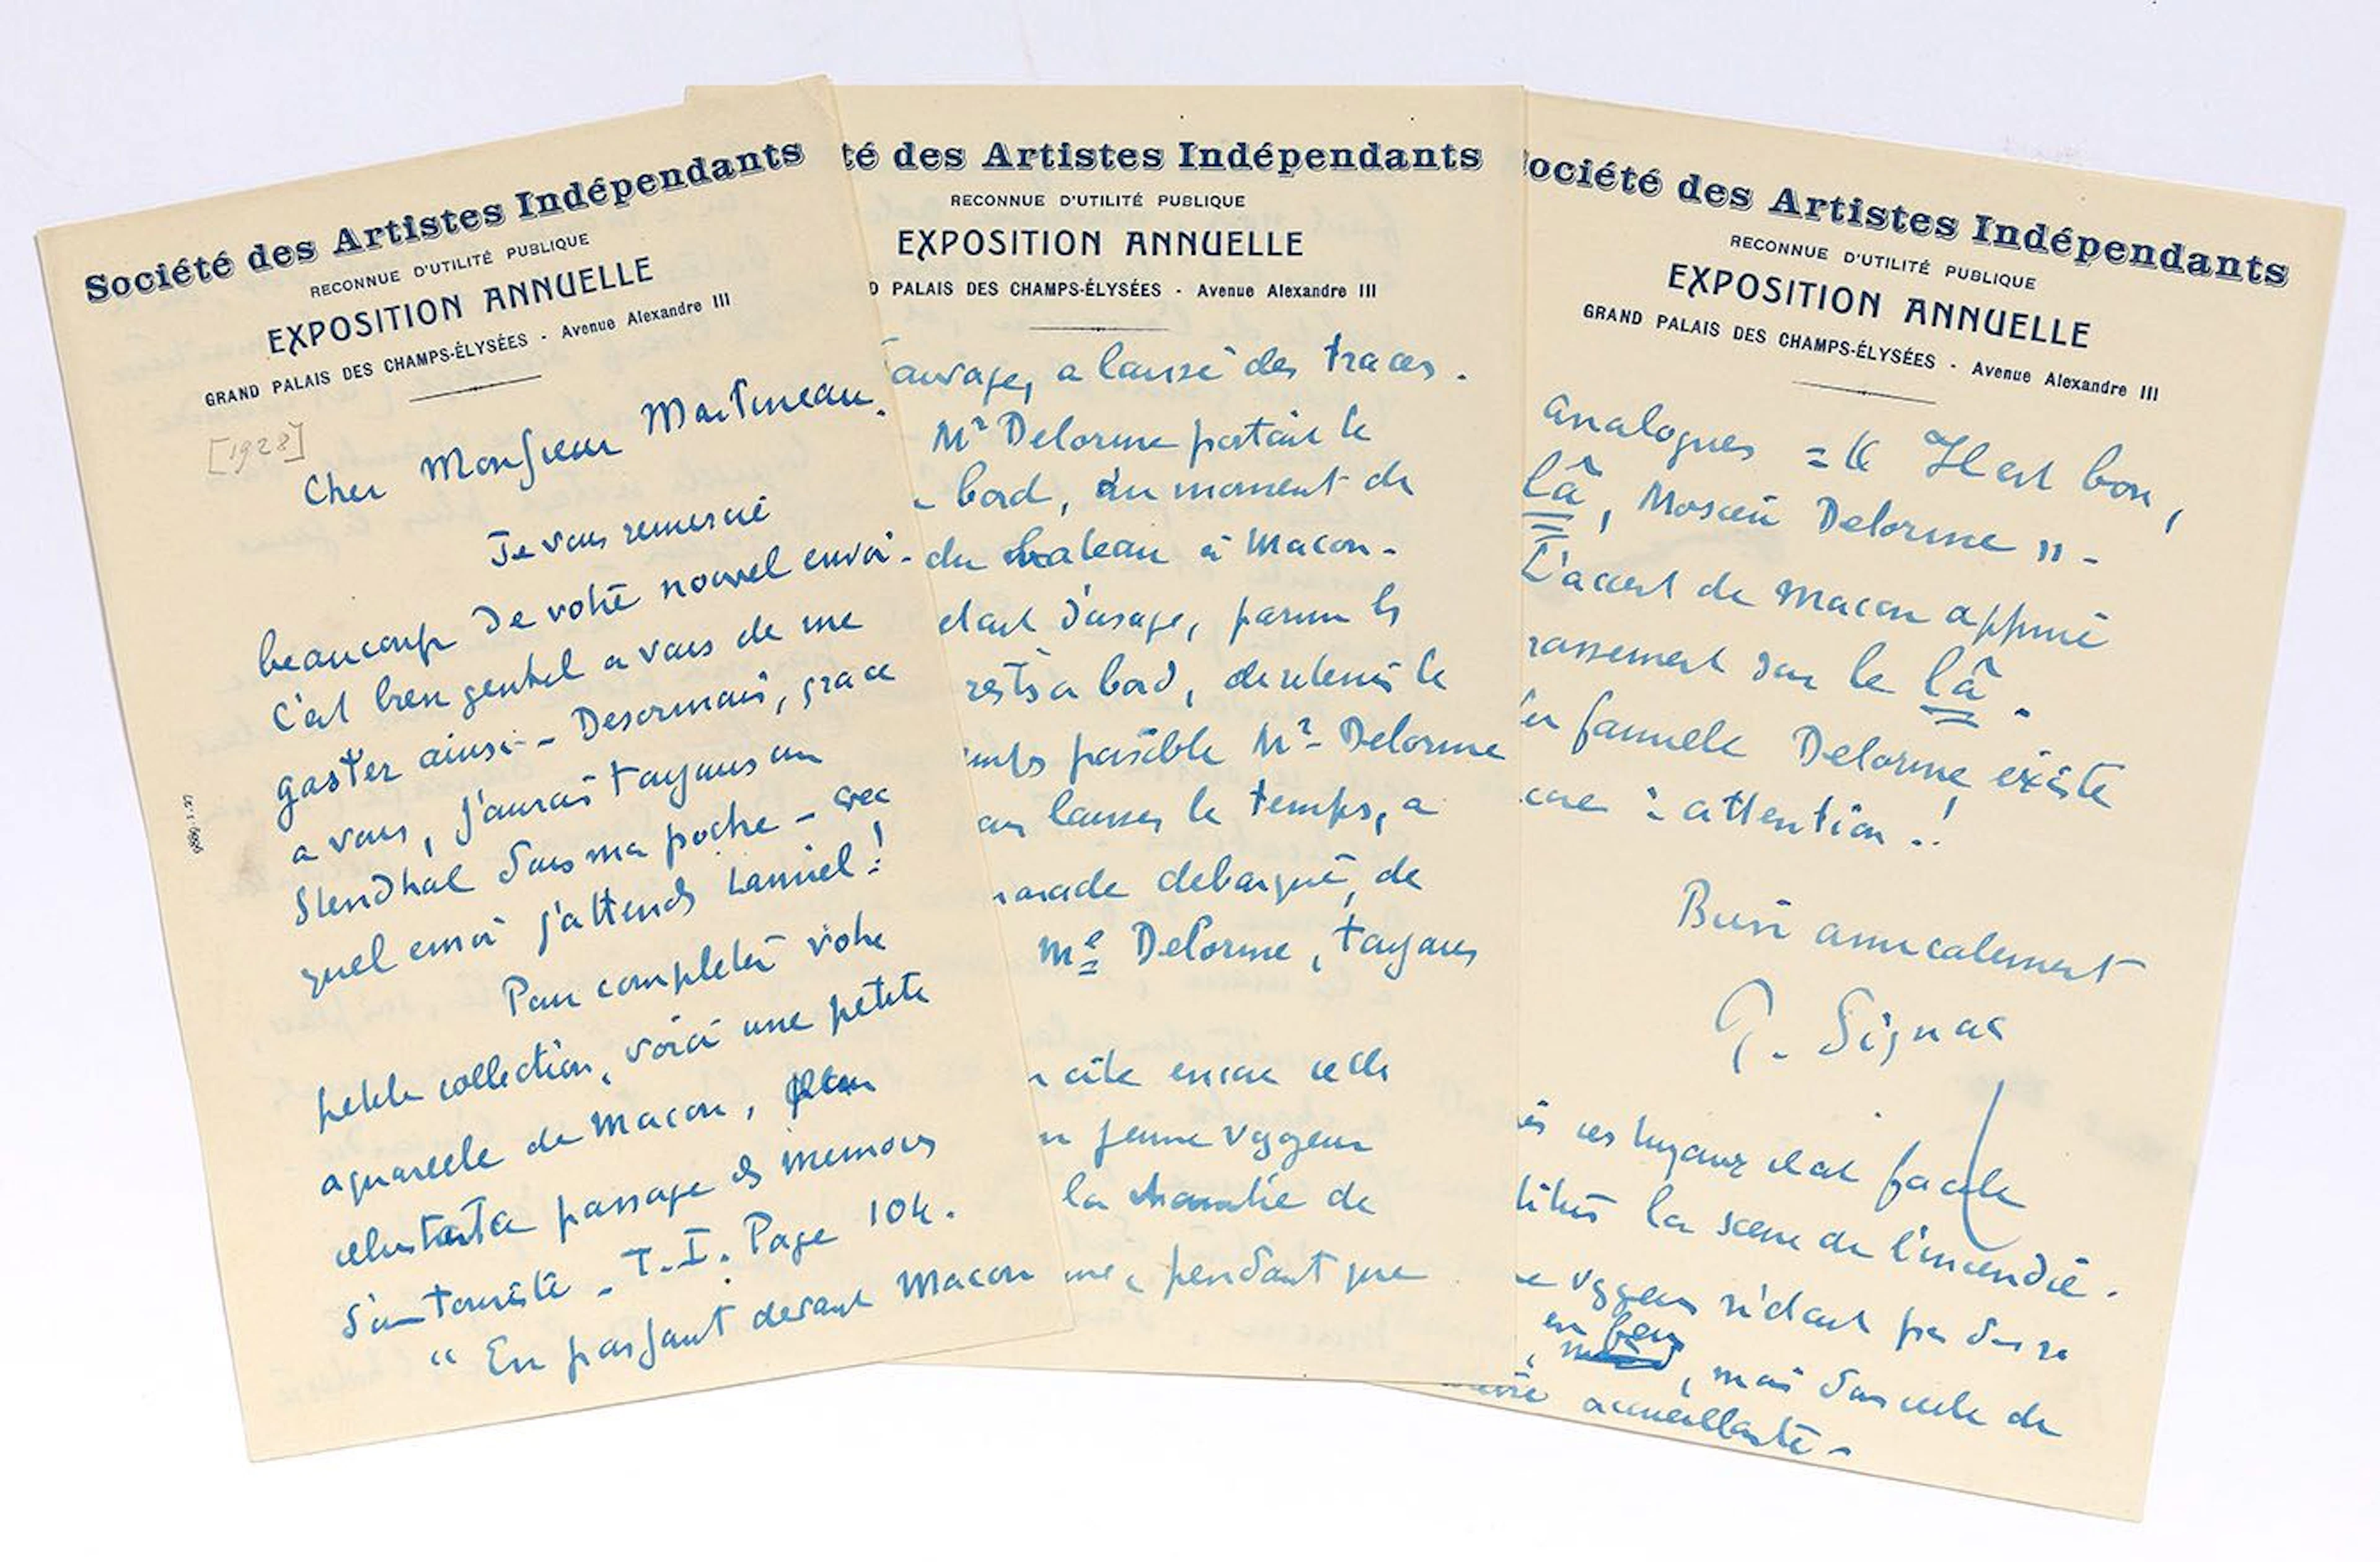 Société des Artistes Indépendants
RECONNUE D'UTILITÉ PUBLIQUE
EXPOSITION ANNUELLE
GRAND PALAIS DES CHAMPS-ÉLYSÉES - Avenue Alexandre III
[1928]
Cher Monsieur Martineau.
Je vous remercie
beaucoup de votre nouvel envoi.
C'est bien gentil a vous de me
gaster ainsi - Desormais, grace
a vous, j'aurai toujours un
Stendhal dans ma poche - avec
quel emoi j'attends Lamiel!
Pour completer votre
petite collection, voici une petite
aquarelle de Macon,
illustrant a passage des memoires
d'un touriste - T. I. Page 104.
" En passant devant Macon
té des Artistes Indépendants
RECONNUE D'UTILITÉ PUBLIQUE
EXPOSITION ANNUELLE
D PALAIS DES CHAMPS-ÉLYSÉES - Avenue Alexandre III
a laissé des traces.
Mr Delorme portait le
bord, au moment de
du bateau à Macon -
etait d'usage, parmi les
restés a bord, de retenir le
possible Mr Delorme
laisser le temps, a
debarqué, de
Me Delorme, toujours
cite encore celle
jeune voyageur
la de
pendant que
ociété des Artistes Indépendants
RECONNUE D'UTILITÉ PUBLIQUE
EXPOSITION ANNUELLE
GRAND PALAIS DES CHAMPS-ÉLYSÉES - Avenue Alexandre III
analogues = " Il est bon,
là, Mosieu Delorme " -
L'accent de Macon appuie
sur le là.
famille Delorme existe
: attention..!
Bien amicalement
P. Signac
ces tuyaux il est facile
la scene de l'incendie.
n'etait pas dans sa
en feu, mais dans celle de
accueillante -